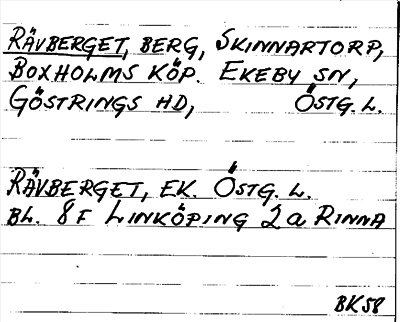 RÄVBERGET, BERG, SKINNARTORP,
BOXHOLMS KÖP. EKEBY SN,
GÖSTRINGS HD, ÖSTG. L.
RÄVBERGET, EK. ÖSTG. L.
BL. 8F LINKÖPING 2a RINNA
BK58